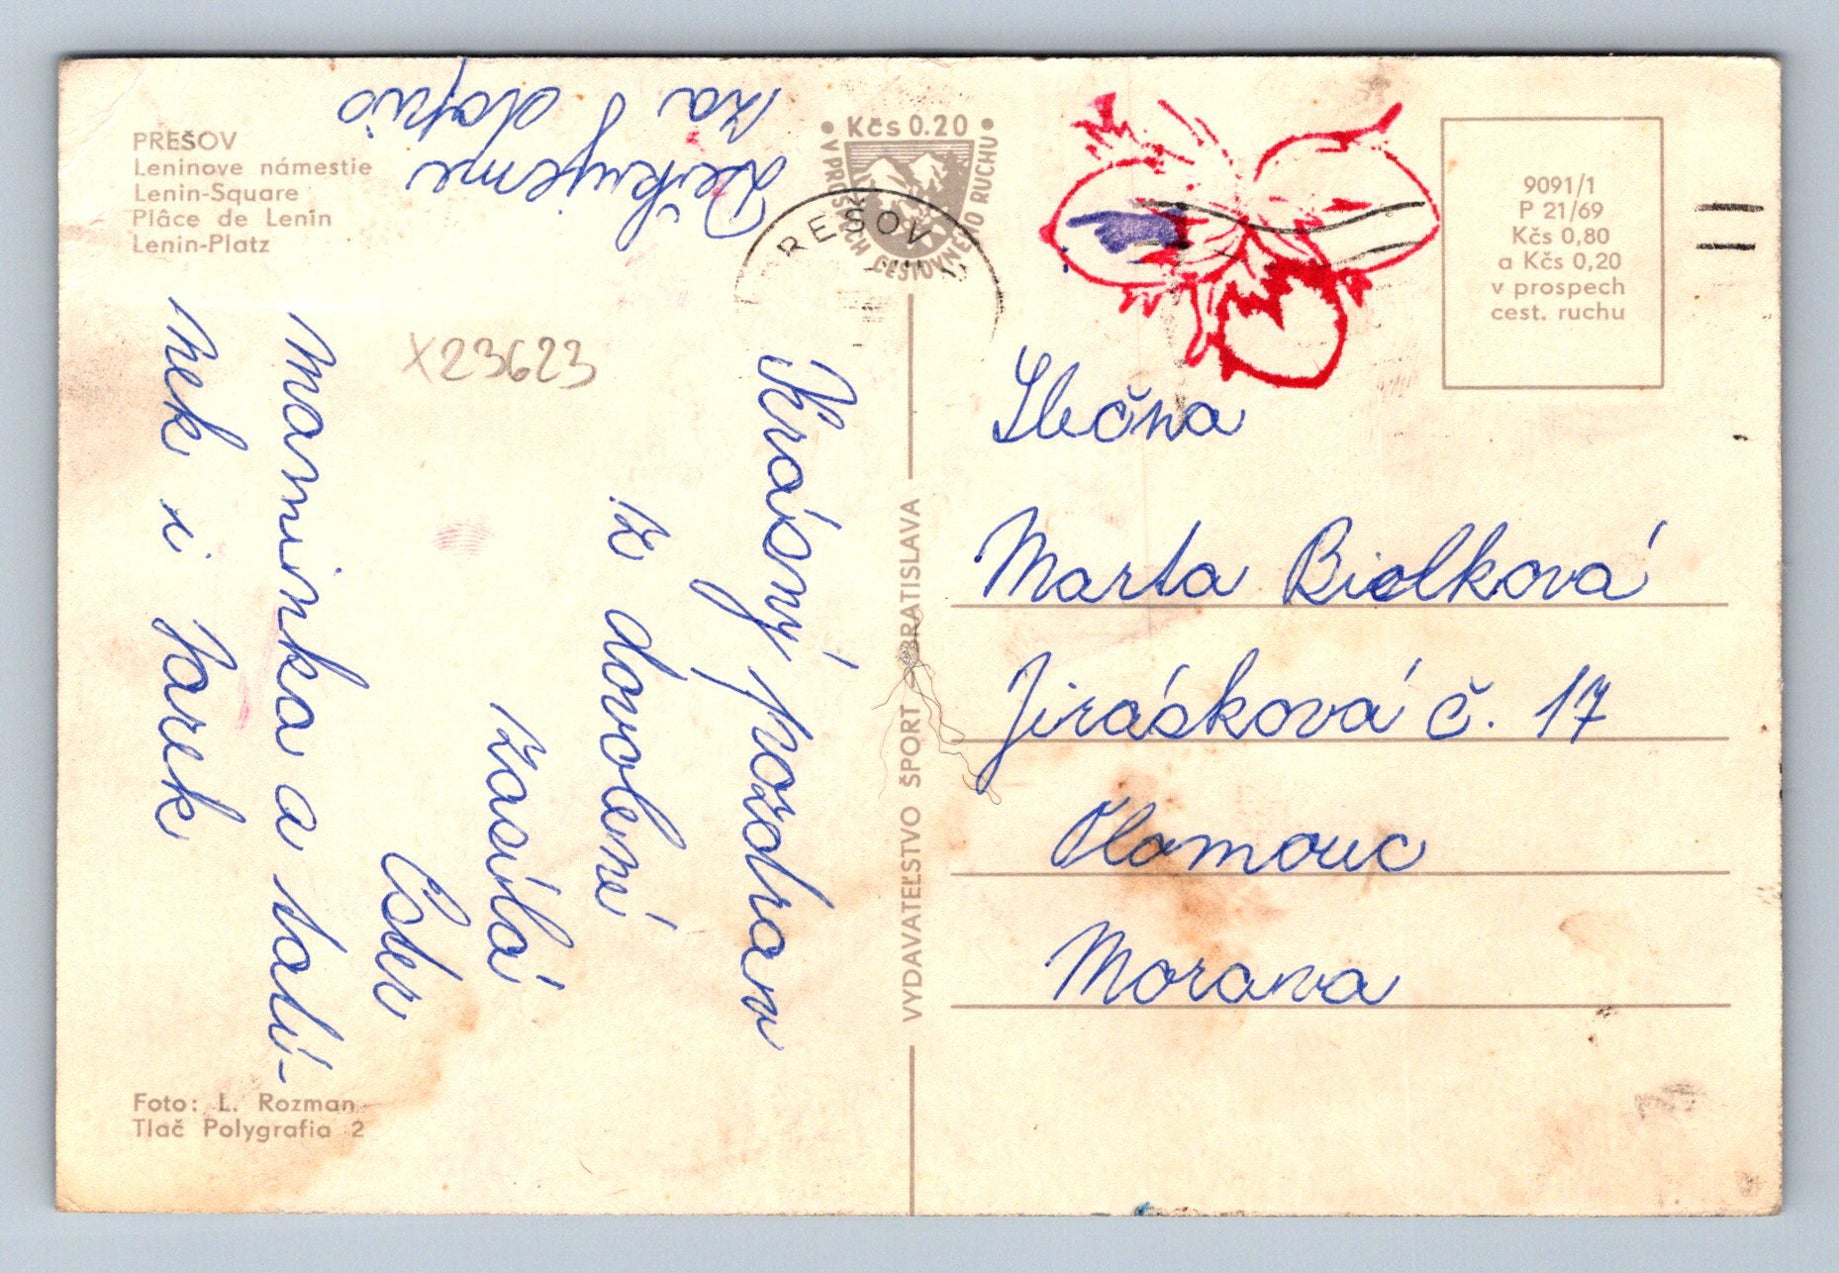 PREŠOV
Leninove námestie
Lenin-Square
Plâce de Lenin
Lenin-Platz
Děkujeme
za dopis
X23623
Krásný pozdrav
z dovolené
zasílá
Ester
maminka a tatí-
nek i Jarek
Foto: L. Rozman
Tlač Polygrafia 2
• Kčs 0.20 •
V PROSPECH CESTOVNÉHO RUCHU
PREŠOV
VYDAVATEĽSTVO ŠPORT BRATISLAVA
9091/1
P 21/69
Kčs 0,80
a Kčs 0,20
v prospech
cest. ruchu
Slečna
Marta Bielková
Jirásková č. 17
Olomouc
Morava